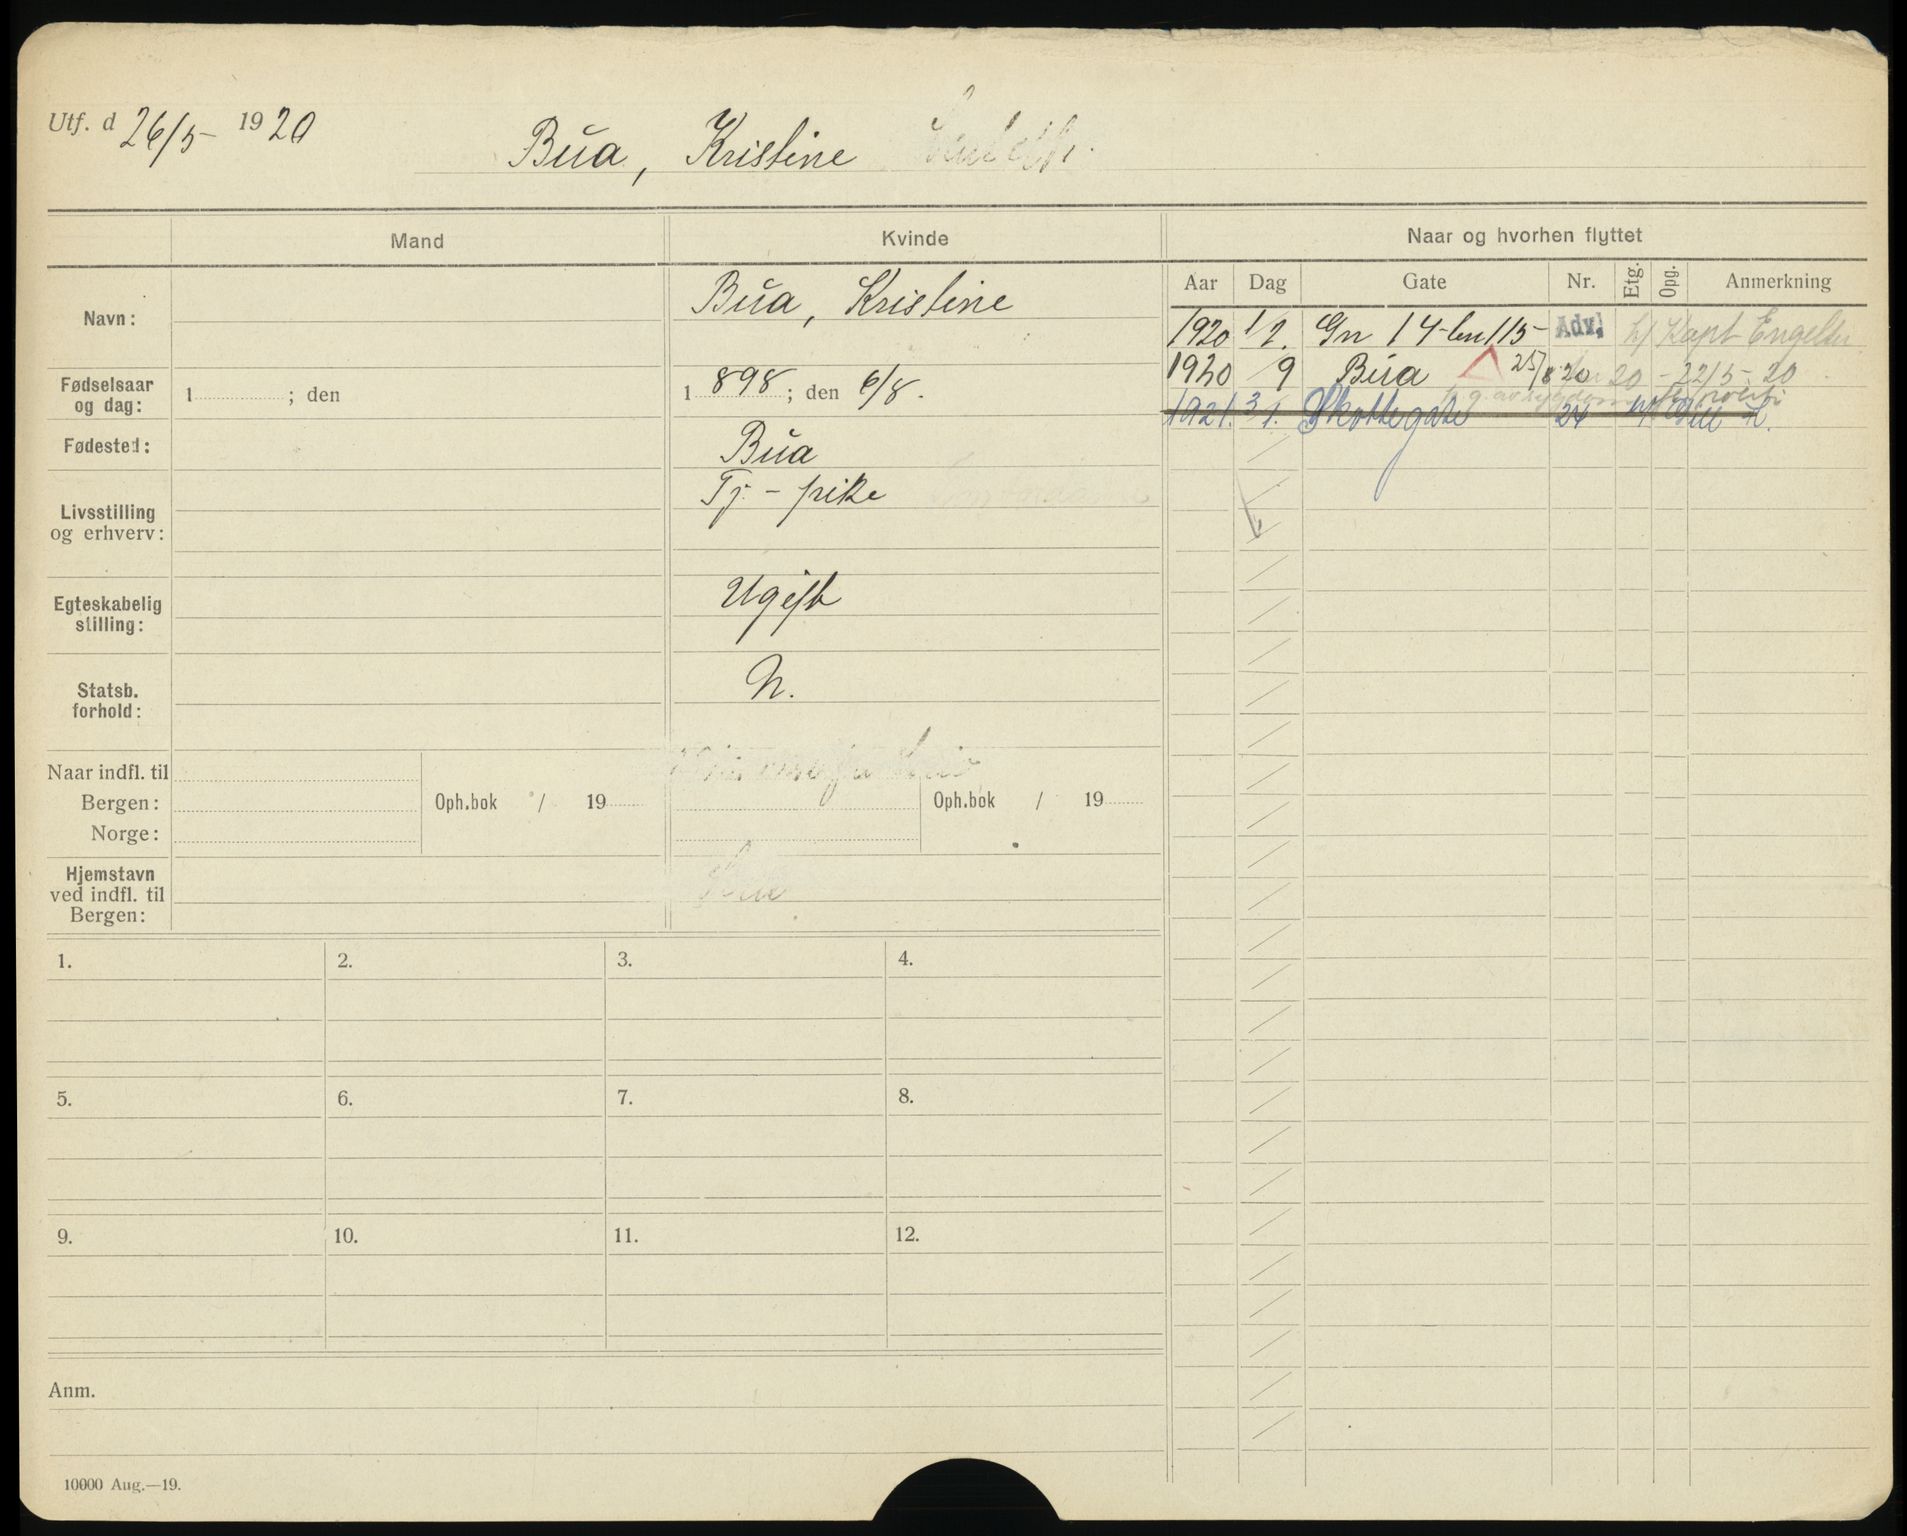 Utf. d 26/5- 1920
Bua, Kristine
Mand
Kvinde
Naar og hvorhen flyttet
Aar
Dag
Gate
Nr.
Etg.
Opg.
Anmerkning
Navn:
Bua, Kristine
1920 1/2. Gn 14-
Adv.
h/ Kapt
1920 /9 Bua 25/8 20 20 - 22/5 - 20
1921. 3/1. Skottegate 24
Fødselsaar
og dag:
1 ; den
1 898 ; den 6/8.
Fødested:
Bua
Livsstilling
og erhverv:
Tj. - pike
Egteskabelig
stilling:
Ugift
Statsb.
forhold:
N.
Naar indfl. til
Bergen:
Norge:
Oph.bok / 19
Oph.bok / 19
Hjemstavn
ved indfl. til
Bergen:
1.
2.
3.
4.
5.
6.
7.
8.
9.
10.
11.
12.
Anm.
10000 Aug.—19.